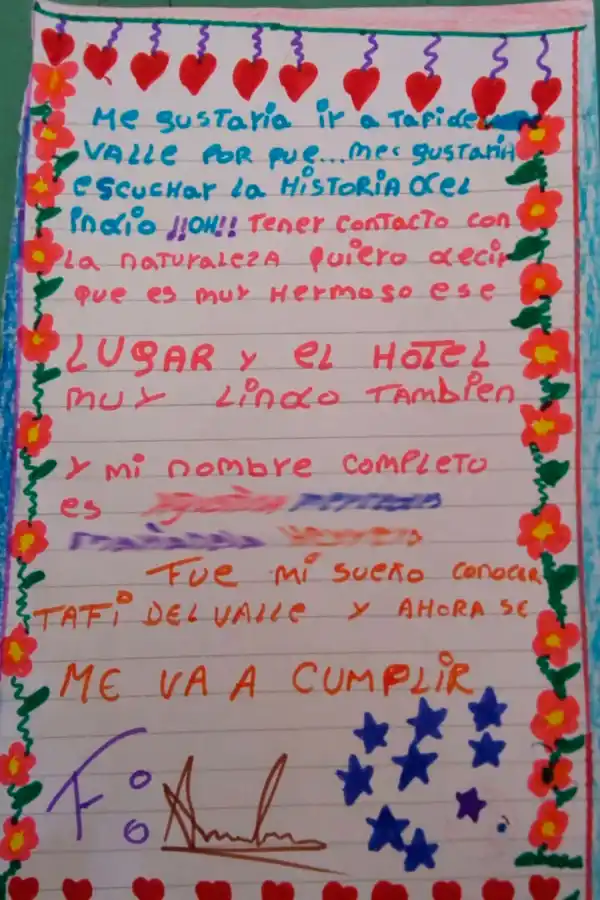 Me gustaría ir a Tafi del
VALLE POR que... me gustaría
escuchar la HISTORIA del
Indio ¡¡OH!! Tener conTacTo con
La naturaleza quiero decir
que es muy Hermoso ese
LUGAR y eL HOTEL
muy Lindo TAmbien
y mi nombre compLeTo
es
Fue mi sueño conocer
TAFÍ DEL VALLE y AHORA SE
ME VA A CUMPLIR
F: